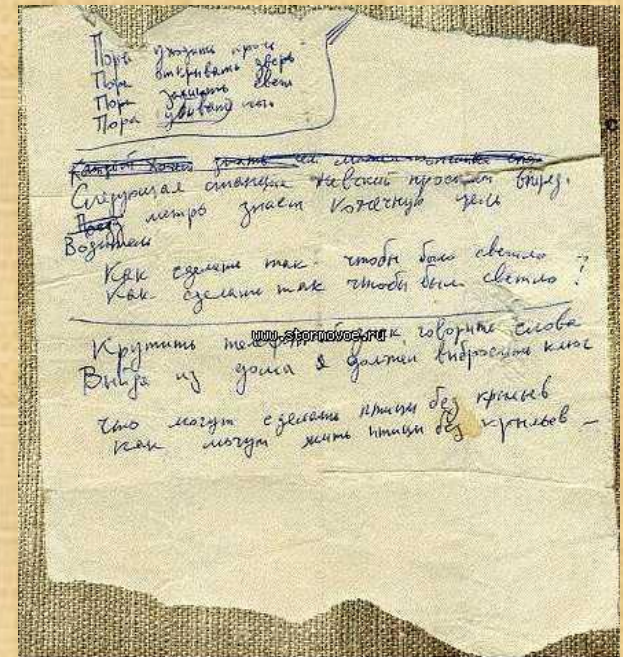 Пора уходить прочь
Пора открывать дверь
Пора зажигать свет
Пора убивать
Каждый хочет знать чем может
Следующая станция Невский проспект вперед.
Поезд метро знает конечную цель
Водитель
Как сделать так чтобы было светло
Как сделать так чтобы было светло?
www.stornovoe.ru
Крутить телефонный диск, говорить слова
Выйдя из дома я должен выбросить ключ
Что могут сделать птицы без крыльев
Как могут жить птицы без крыльев –
с